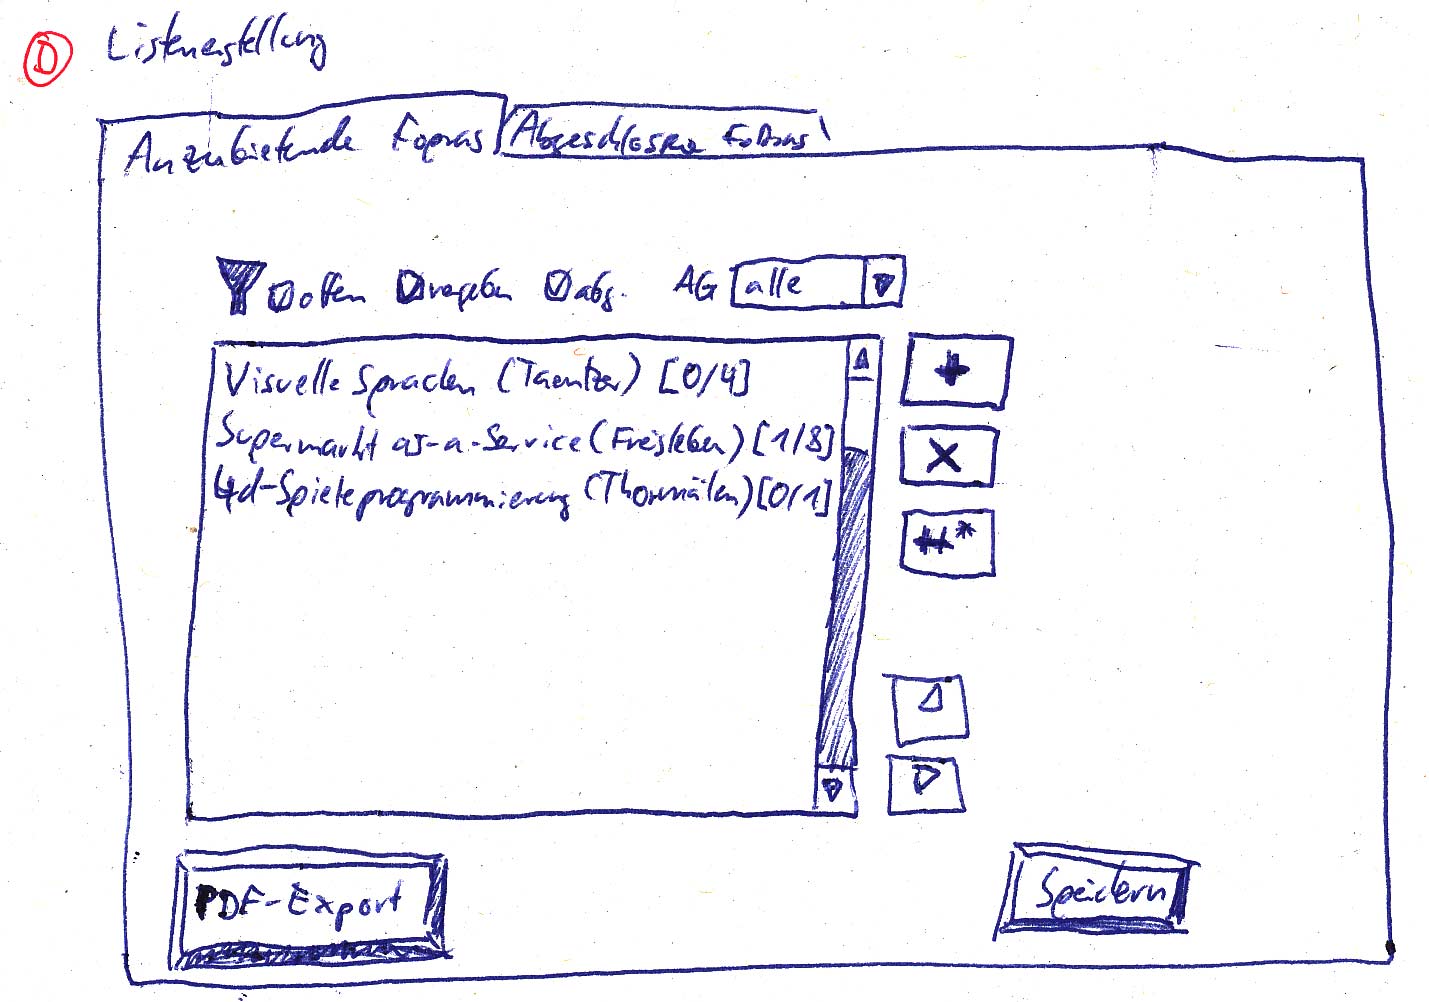 D Listenerstellung
Anzubietende Fopras Abgeschlossene FoPras
offen vergeben abg. AG alle
Visuelle Sprachen (Taentzer) [0/4]
Supermarkt as-a-Service (Freisleben) [1/8]
4d-Spieleprogrammierung (Thormälen) [0/1]
+
X
#*
PDF-Export Speichern